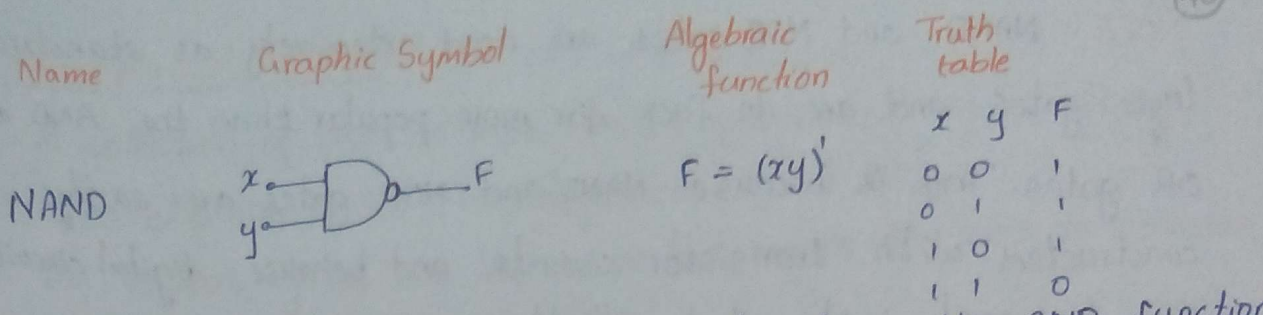 Name Graphic Symbol Algebraic function Truth table
x y F
NAND x y F F = (xy)' 0 0 1
0 1 1
1 0 1
1 1 0
function